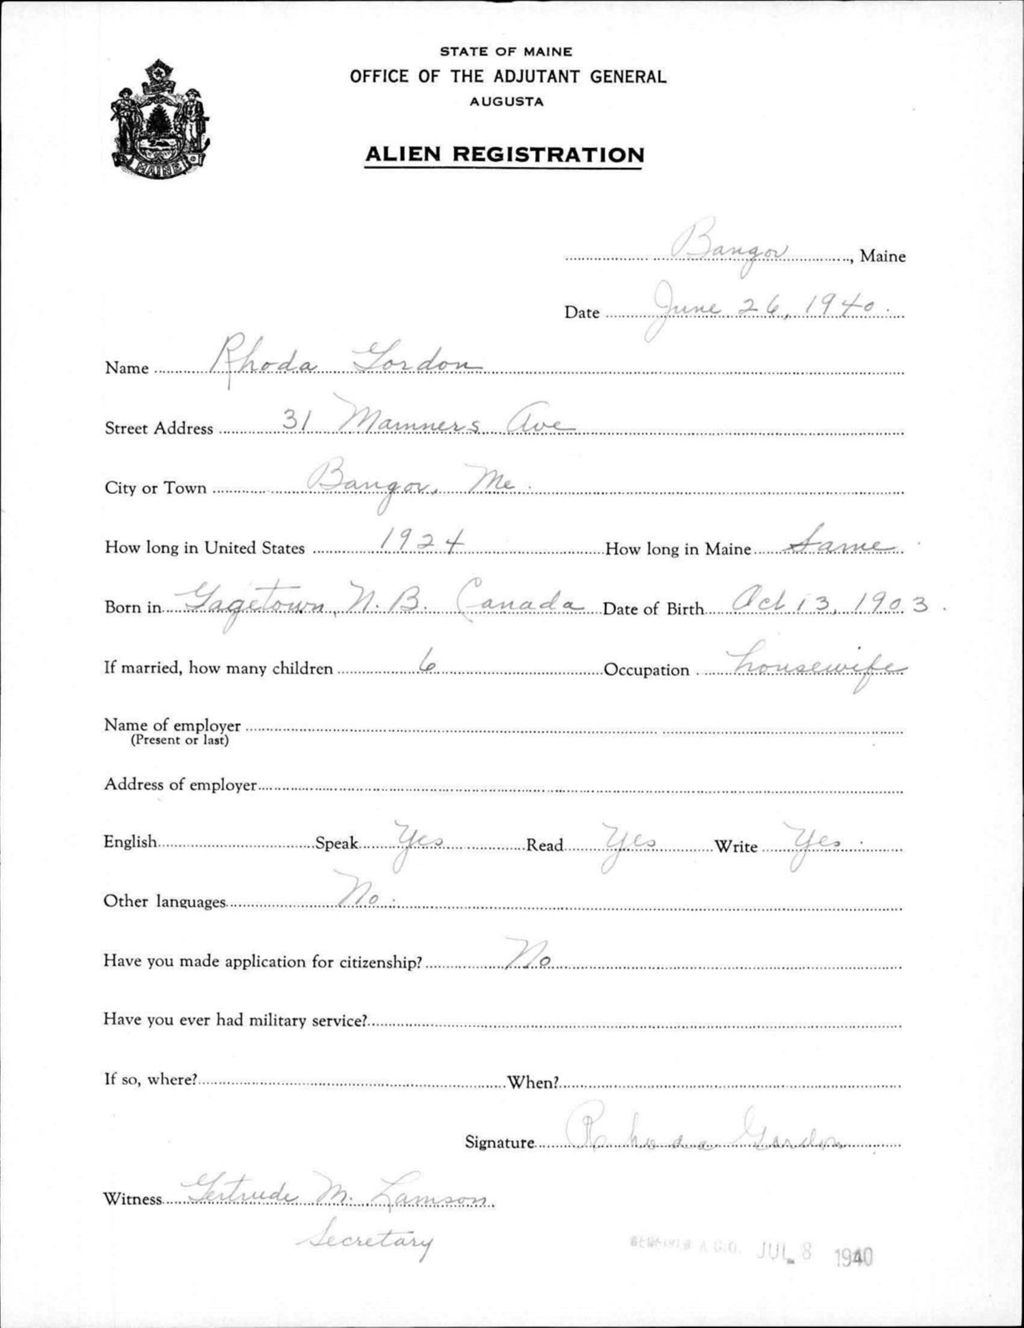 STATE OF MAINE
OFFICE OF THE ADJUTANT GENERAL
AUGUSTA
ALIEN REGISTRATION
MAINE
Bangor, Maine
Date June 26, 1940.
Name Rhoda Gordon
Street Address 31 Mamners Ave
City or Town Bangor, Me.
How long in United States 1924 How long in Maine Same.
Born in Gagetown, N.B. Canada Date of Birth Oct 13, 1903.
If married, how many children 6 Occupation housewife
Name of employer
(Present or last)
Address of employer
English Speak Yes Read Yes Write Yes.
Other languages No.
Have you made application for citizenship? No
Have you ever had military service?
If so, where? When?
Signature Rhoda Gordon
Witness Gertrude M. Lamson.
Secretary
A.G.O. JUL 8 1940